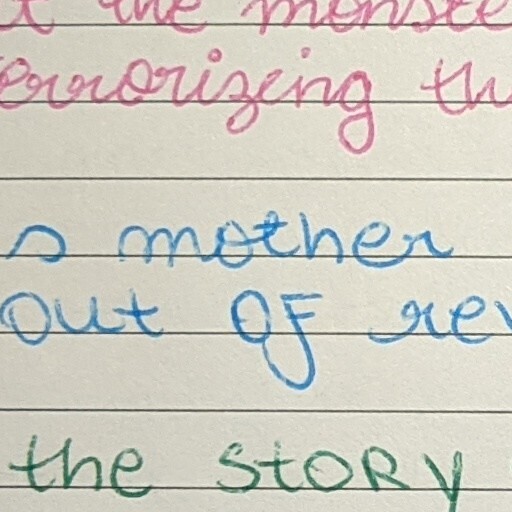 t the monste
errorizing th
s mother
out of rev
the story